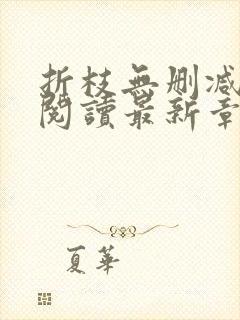 折枝無刪减
閱讀最新章
夏華